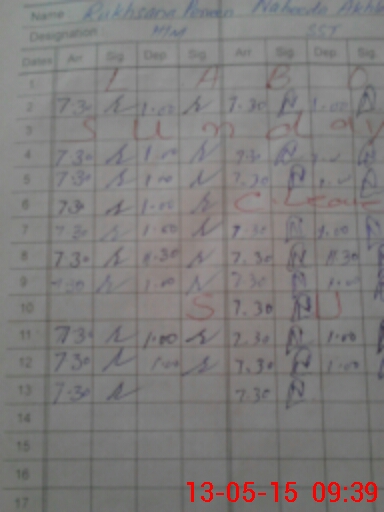 Name Rukhsana Parveen Naheeda Akht
Designation HM SST
Dates Arr Sig. Dep. Sig. Arr Sig. Dep. Sig.
1 L A B O
2 7.30 1.00 7.30 1.00
3 S u n d a y
4 7.30 1.00 7.30
5 7.30 1.00 7.30
6 7.30 1.00 C. Leave
7 7.30 1.00 7.30 1.00
8 7.30 11.30 7.30 11.30
9 7.30 1.00 7.30 1.00
10 S 7.30 U
11 7.30 1.00 7.30 1.00
12 7.30 1.00 7.30 1.00
13 7.30 7.30
14
15
16
17
13-05-15 09:39